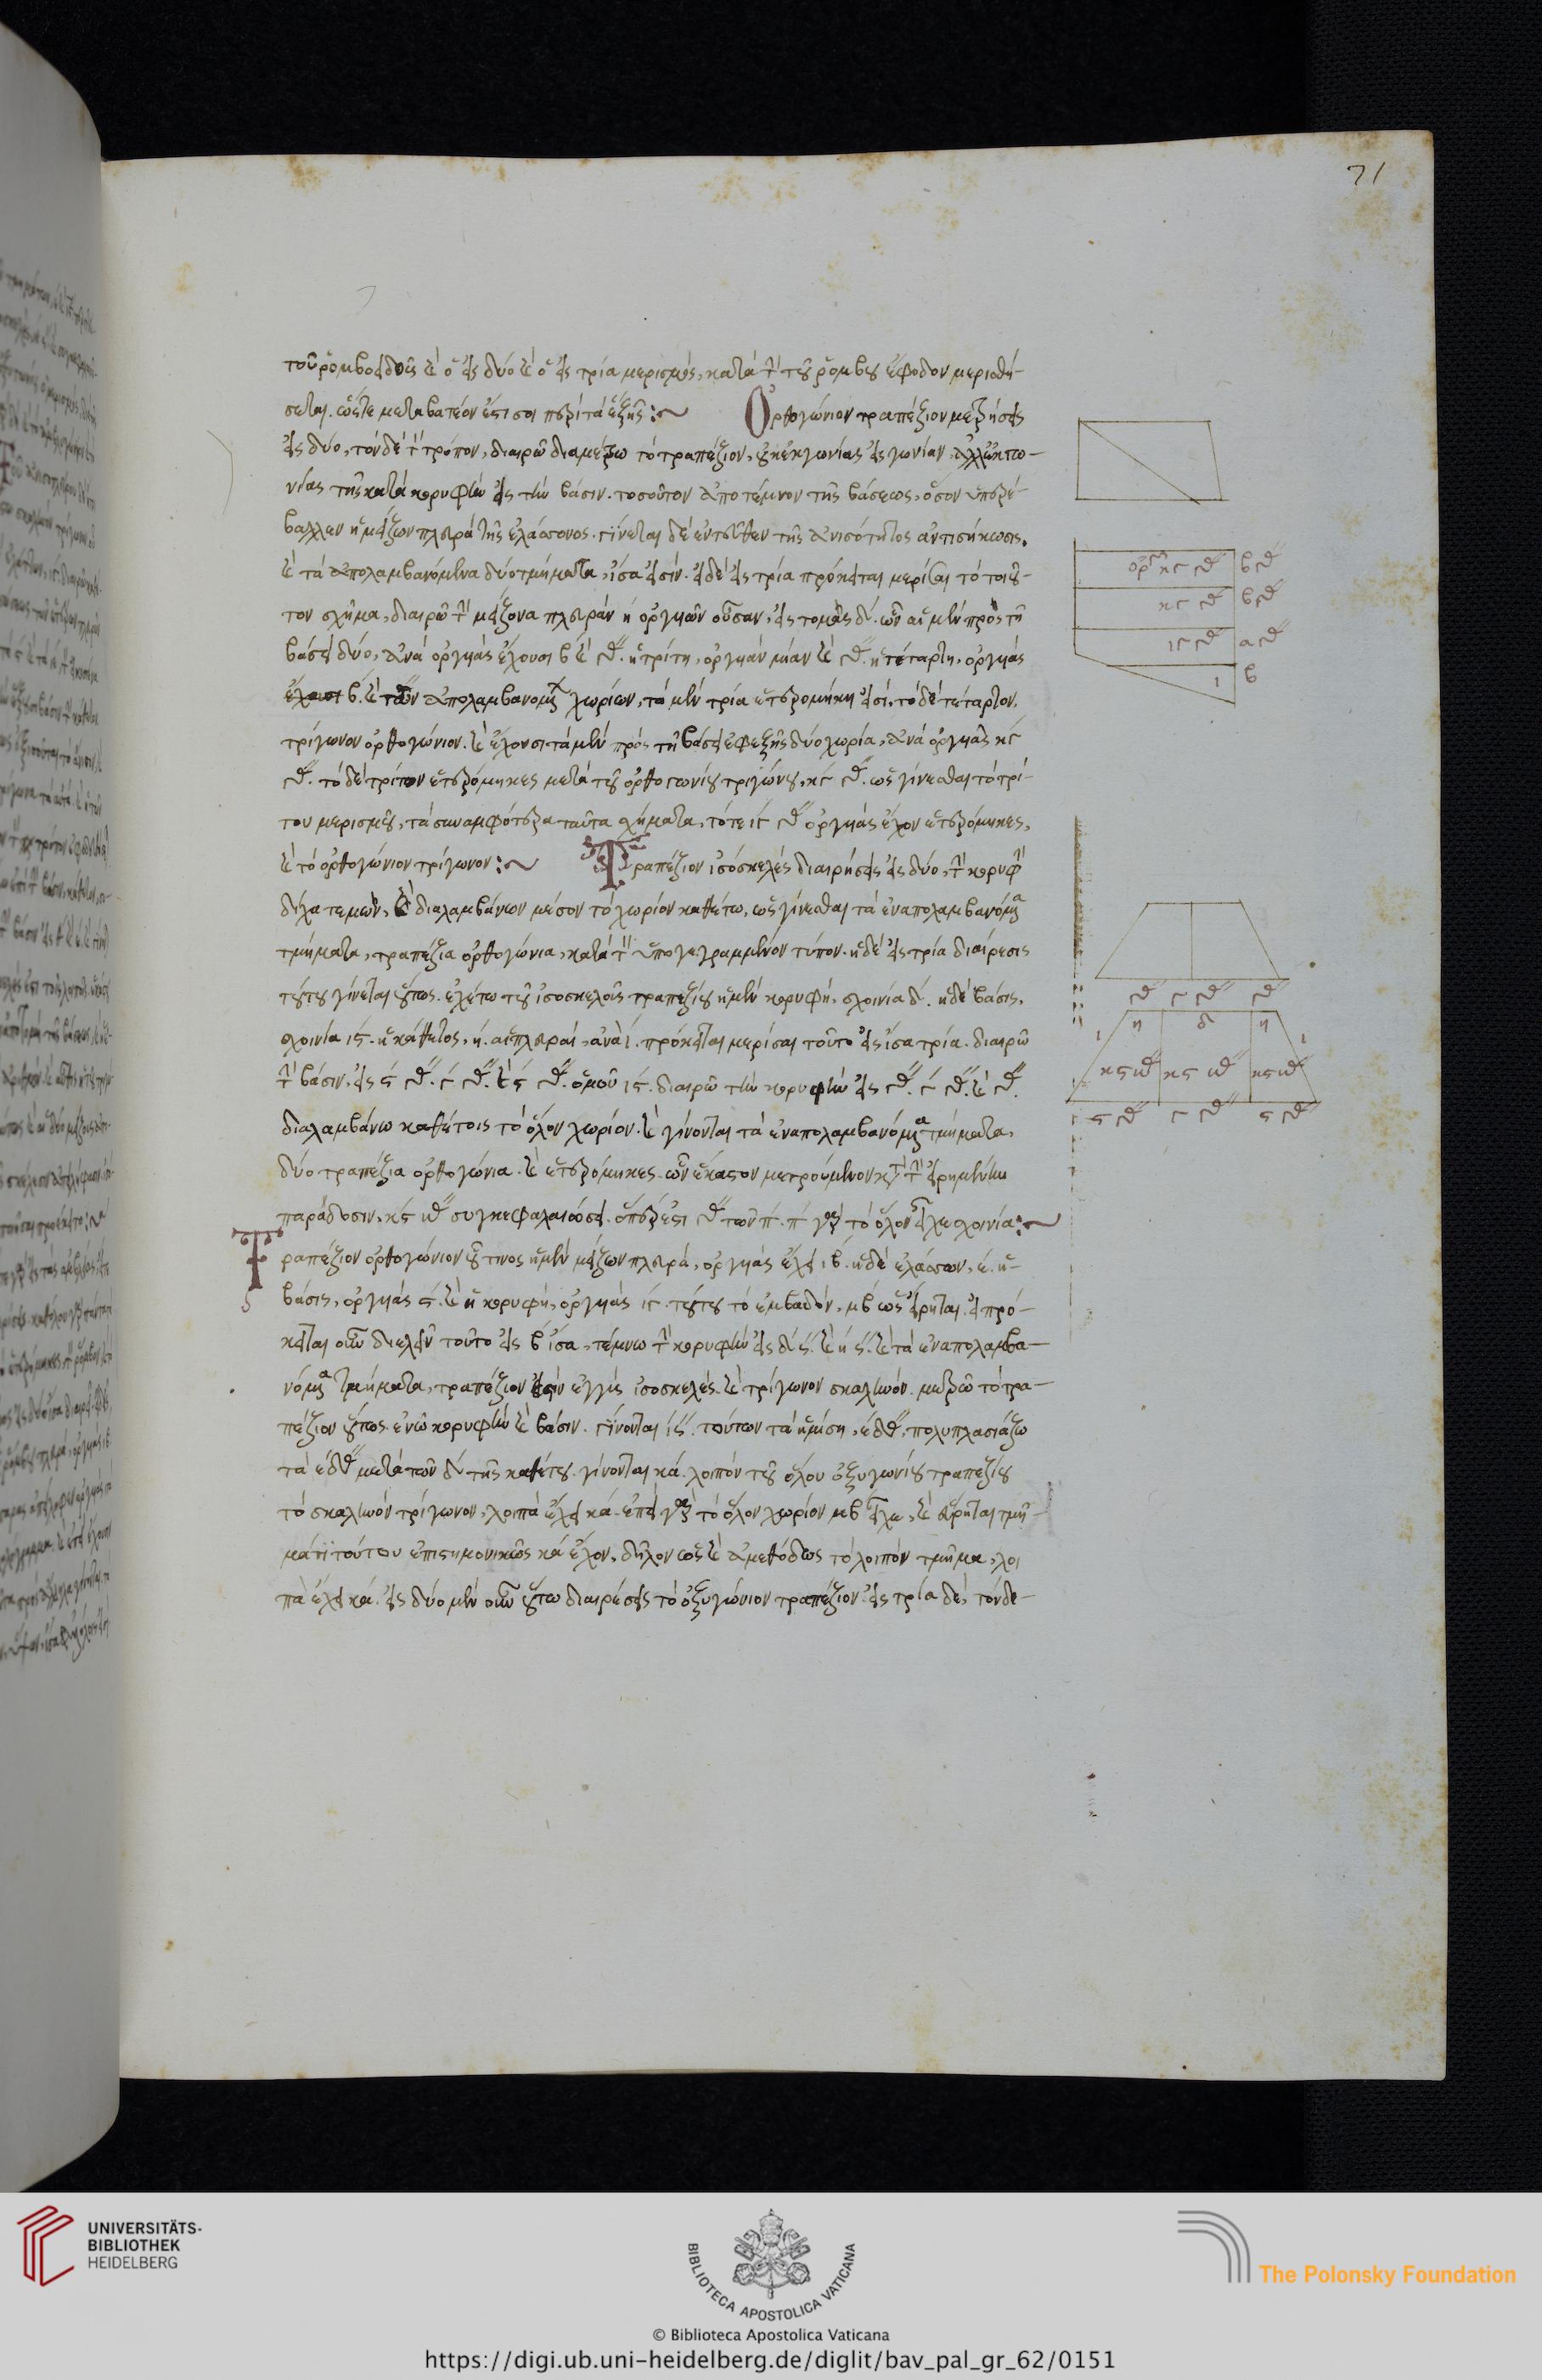 71
τοῦ ῥομβοειδοῦς καὶ ὁ εἰς δύο καὶ ὁ εἰς τρία μερισμὸς, κατὰ τὴν τοῦ ῥόμβου ἔφοδον μερισθή-
σεται. ὥστε μεταβατέον ἐστί σοι περὶ τὰ ἑξῆς :~ Ὀρθογώνιον τραπέζιον μετρήσεις
εἰς δύο, τόνδε τὸν τρόπον, διαιρῶ διαμέτρῳ τὸ τραπέζιον, οὐκ ἐκ γωνίας εἰς γωνίαν, ἀλλ' ἐκ γω-
νίας τῆς κατὰ κορυφὴν εἰς τὴν βάσιν. τοσοῦτον ἀποτέμνον τῆς βάσεως, ὅσον ὑπερέ-
βαλλεν ἡ μείζων πλευρὰ τῆς ἐλάσσονος. γίνεται δὲ ἐντεῦθεν τῆς ἀνισότητος ἀντισήκωσις.
καὶ τὰ ἀπολαμβανόμενα δύο τμήματα, ἴσα εἰσίν. εἰ δὲ εἰς τρία πρόκειται μερίσαι τὸ τοιοῦ-
τον σχῆμα, διαιρῶ τὴν μείζονα πλευρὰν η ὀργυιῶν οὖσαν, εἰς τομὰς δ. ὧν αἱ μὲν πρὸς τῇ
βάσει δύο, ἀνὰ ὀργυιὰς ἔχουσι β καὶ 𐅵. ἡ τρίτη, ὀργυιὰν μίαν καὶ 𐅵. ἡ τετάρτη, ὀργυιὰς
ἔχουσι β. καὶ τῶν ἀπολαμβανομένων χωρίων, τὰ μὲν τρία ἑτερομήκη εἰσί, τὸ δὲ τέταρτον,
τρίγωνον ὀρθογώνιον. καὶ ἔχουσι τὰ μὲν πρὸς τῇ βάσει ἐφεξῆς δύο χωρία, ἀνὰ ὀργυιὰς κϛ
𐅵. τὸ δὲ τρίτον ἑτερόμηκες μετὰ τοῦ ὀρθογωνίου τριγώνου, κϛ 𐅵. ὡς γίνεσθαι τὸ τρί-
του μερισμοῦ, τὰ συναμφότερα ταῦτα σχήματα, τό τε ιϛ 𐅵 ὀργυιὰς ἔχον ἑτερόμηκες,
καὶ τὸ ὀρθογώνιον τρίγωνον :~ Τραπέζιον ἰσόσκελὲς διαιρήσεις εἰς δύο, τὴν κορυφὴν
δίχα τεμὼν, καὶ διαλαμβάνων μέσον τὸ χωρίον καθέτῳ, ὡς γίνεσθαι τὰ ἐναπολαμβανόμενα
τμήματα, τραπέζια ὀρθογώνια, κατὰ τὸν ὑπογεγραμμένον τύπον. ἡ δὲ εἰς τρία διαίρεσις
τούτου γίνεται οὕτως. ἐχέτω τοῦ ἰσοσκελοῦς τραπεζίου ἡ μὲν κορυφὴ, σχοινία δ. ἡ δὲ βάσις,
σχοινία ιϛ. ἡ κάθετος, η. αἱ πλευραὶ, ἀνὰ ι. πρόκειται μερίσαι τοῦτο εἰς ἴσα τρία. διαιρῶ
τὴν βάσιν, εἰς ϛ 𐅵. γ 𐅵. καὶ ϛ 𐅵. ὁμοῦ ιϛ. διαιρῶ τὴν κορυφὴν εἰς 𐅵. γ 𐅵. καὶ 𐅵.
διαλαμβάνω καθέτοις τὸ ὅλον χωρίον. καὶ γίνονται τὰ ἐναπολαμβανόμενα τμήματα,
δύο τραπέζια ὀρθογώνια. καὶ ἑτερόμηκες. ὧν ἕκαστον μετρούμενον κατὰ τὴν εἰρημένην
παράδοσιν, κϛ 𐅷 συγκεφαλαιώσει. ὅπερ ἐστὶ 𐅵 τῶν π. π γὰρ τὸ ὅλον εἶχε σχοινία :~
Τραπέζιον ὀρθογώνιον οὗ τινος ἡ μὲν μείζων πλευρὰ, ὀργυιὰς ἔχει ιβ. ἡ δὲ ἐλάσσων, ε. ἡ
βάσις, ὀργυιὰς ϛ. καὶ ἡ κορυφὴ, ὀργυιὰς ιϛ. τούτου τὸ ἐμβαδόν, μβ ὡς εἴρηται. εἰ πρό-
κειται οὖν διελεῖν τοῦτο εἰς β ἴσα, τέμνω τὴν κορυφὴν εἰς δ ς. καὶ η ς. καὶ τὰ ἐναπολαμβα-
νόμενα τμήματα, τραπέζιόν ἐστιν ἐγγὺς ἰσοσκελὲς. καὶ τρίγωνον σκαληνόν. μετρῶ τὸ τρα-
πέζιον οὕτως. ἑνῶ κορυφὴν καὶ βάσιν. γίνονται ι ς. τούτων τὰ ἡμίση, ε δ, πολυπλασιάζω
τὰ ε δ μετὰ τῶν δ τῆς καθέτου. γίνονται κα. λοιπὸν τοῦ ὅλου ὀξυγωνίου τραπεζίου
τὸ σκαληνὸν τρίγωνον, λοιπὰ ἔχει κα. ἐπεὶ γὰρ τὸ ὅλον χωρίον μβ εἶχε, καὶ εὕρηται τμή-
μά τι τούτου ἐπιστημονικῶς κα ἔχον, δῆλον ὡς καὶ ἀμεθόδως τὸ λοιπὸν τμῆμα, λοι
πὰ ἔχει κα. εἰς δύο μὲν οὖν οὕτω διαιρέσεις τὸ ὀξυγώνιον τραπέζιον. εἰς τρία δὲ, τόνδε
UNIVERSITÄTS-
BIBLIOTHEK
HEIDELBERG
BIBLIOTECA APOSTOLICA VATICANA
The Polonsky Foundation
© Biblioteca Apostolica Vaticana
https://digi.ub.uni-heidelberg.de/diglit/bav_pal_gr_62/0151